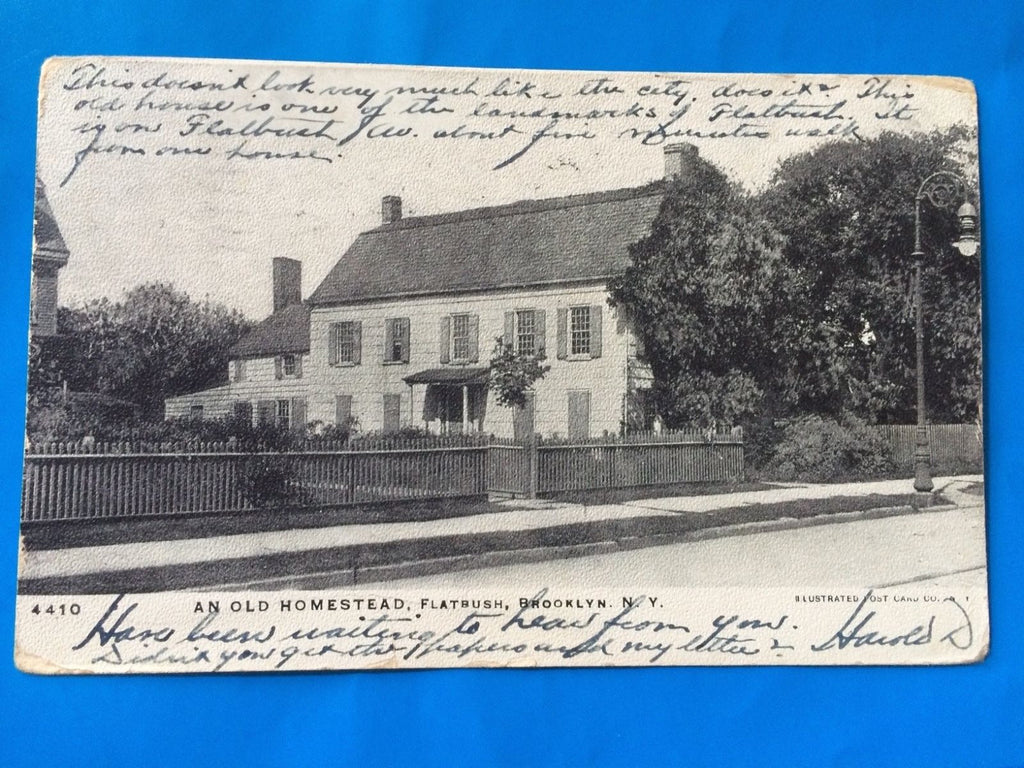 This doesn't look very much like the city, does it? This
old house is one of the landmarks of Flatbush. It
is on Flatbush Av. about five minutes walk
from our house.
4410
AN OLD HOMESTEAD, FLATBUSH, BROOKLYN. N. Y.
ILLUSTRATED POST CARD CO., N. Y.
Have been waiting to hear from you.
Didn't you get the papers and my letter? Harold